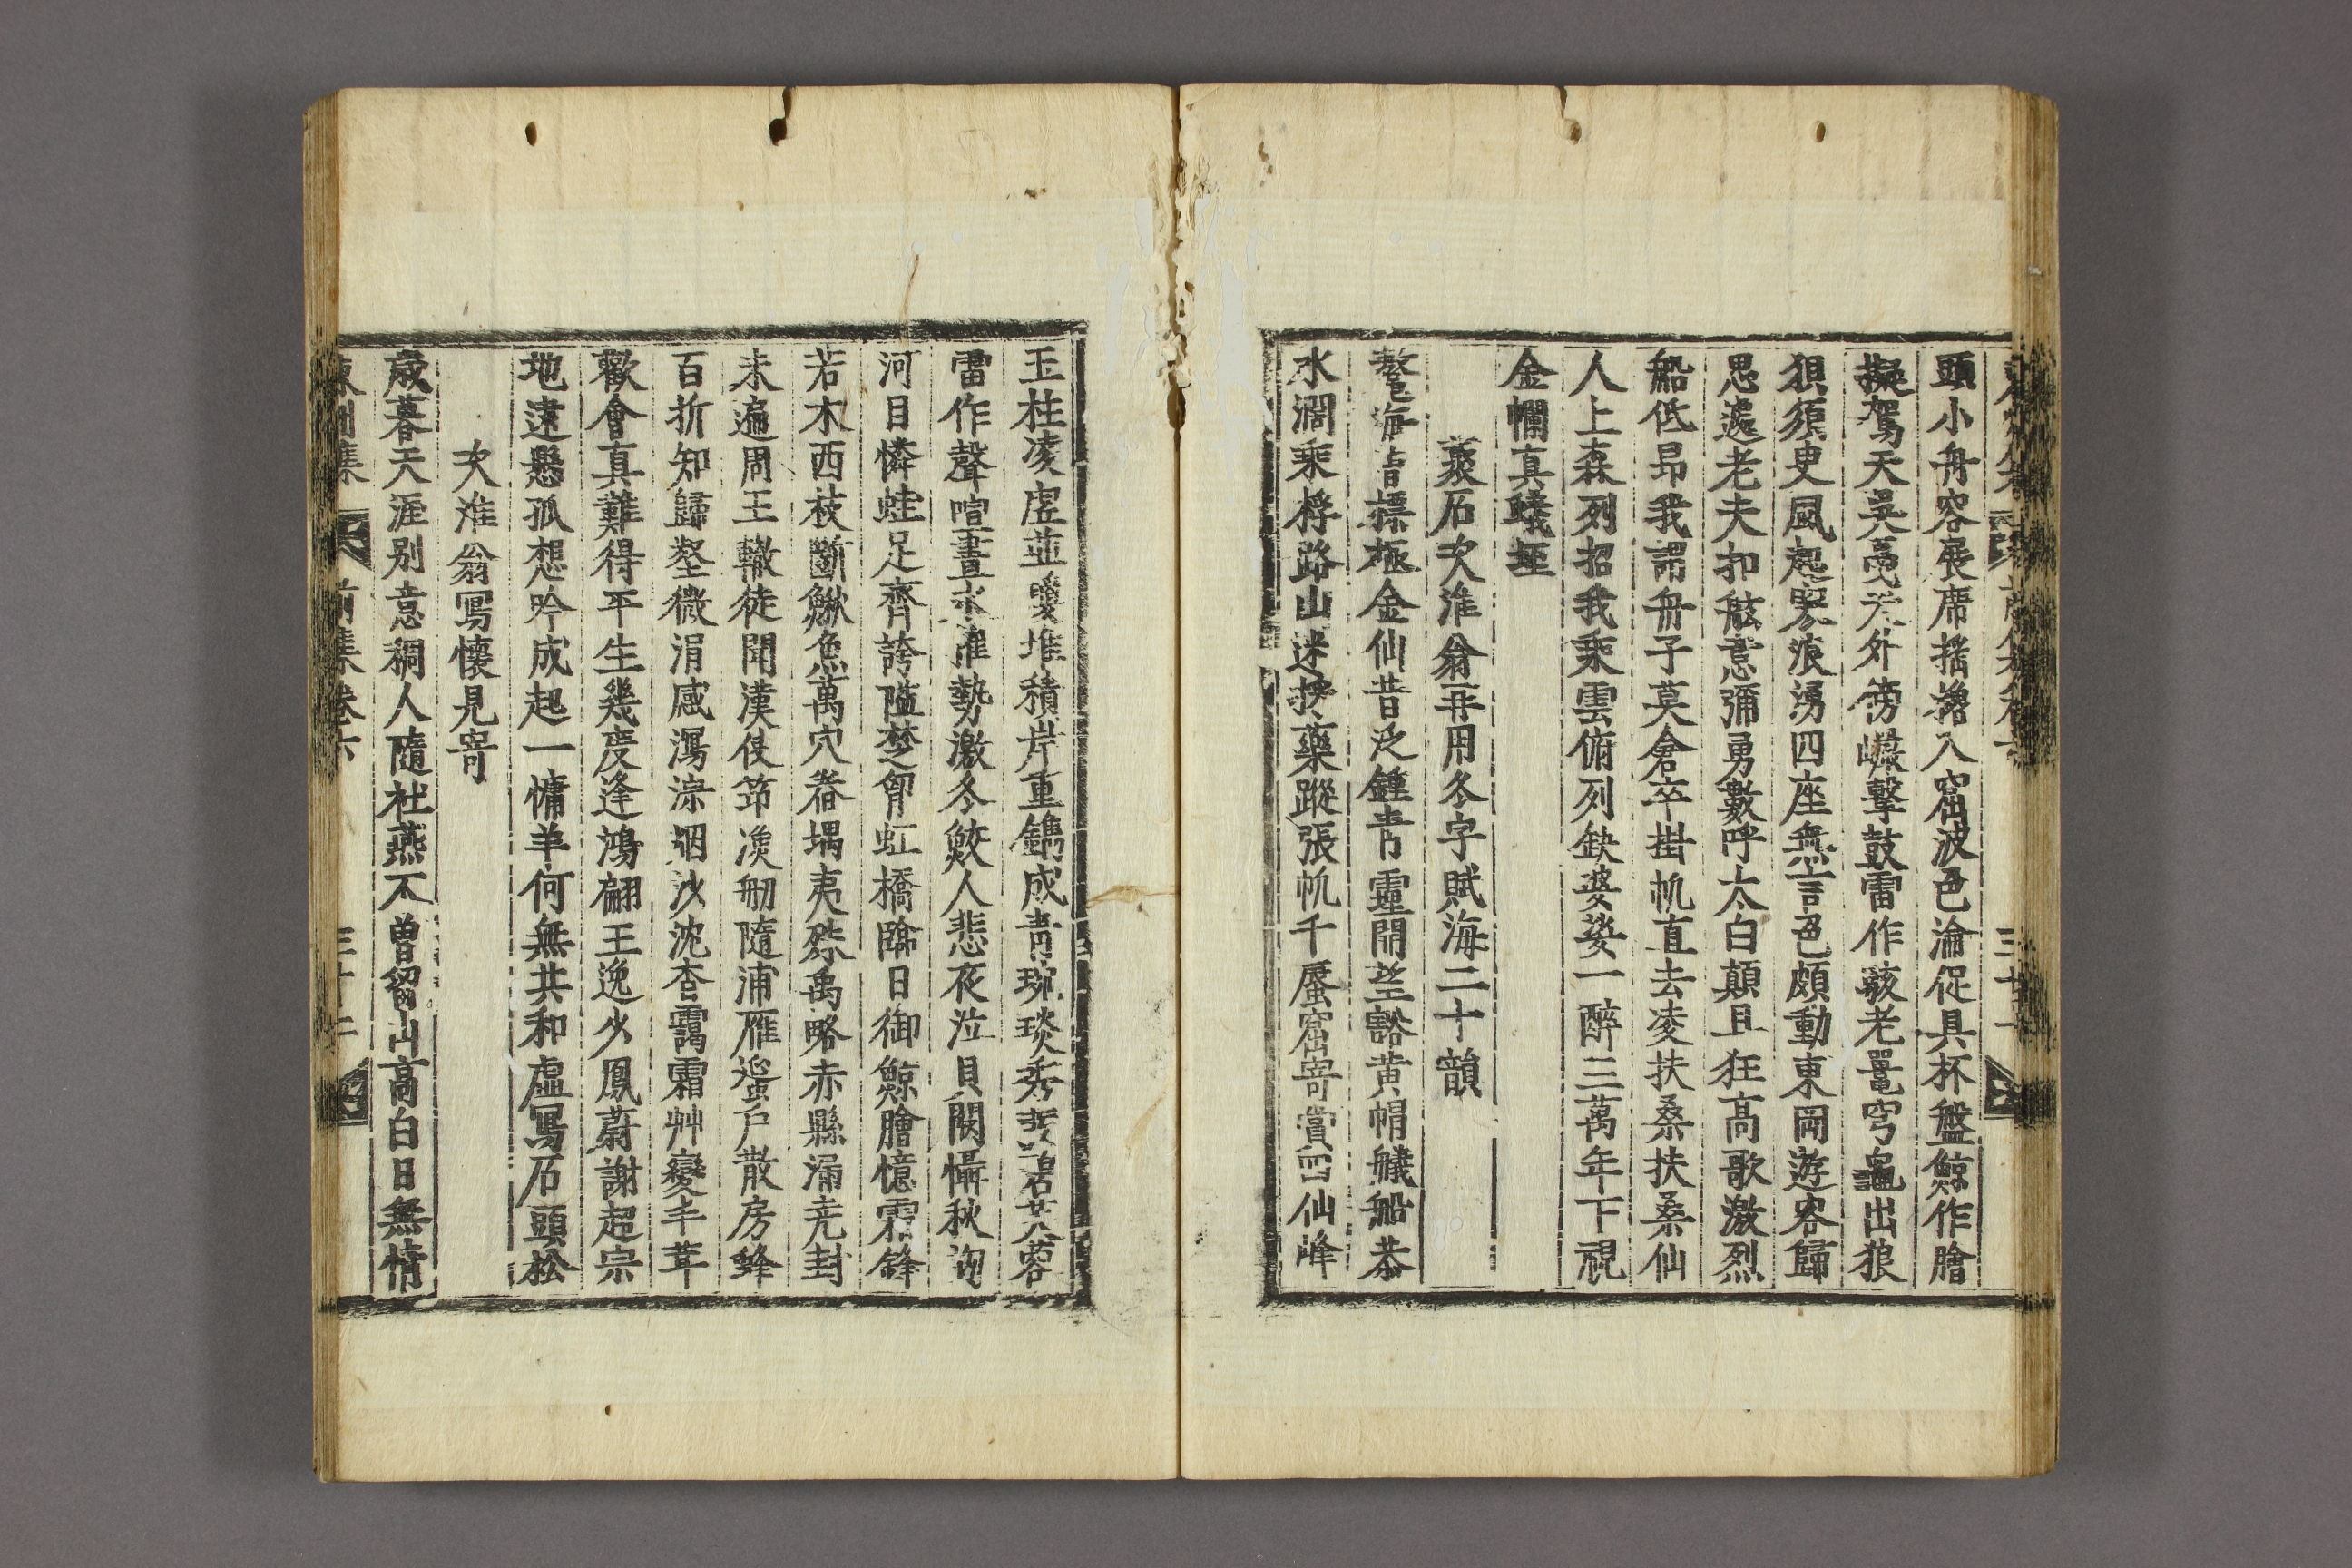 頭小舟容展席搖擼入窟波色淪促具杯盤鯨作膾
擬駕天吳鬲 外傍巘擊鼓雷作駭老鼉穹龜出狼
狽須臾風起寥浪湧四座無言色頗動東岡遊客歸
思遽老夫扣舷意彌勇數呼太白顛且狂高歌激烈
船低昂我謂舟子莫倉卒掛帆直去凌扶桑扶桑仙
人上森列招我乘雲俯列缺婆娑一醉三萬年下視
金欄真蟻垤
裵石次淮翁再用冬字賦海二十韻
鼇海 標極金仙昔泛鍾靑靈開壑豁黃帽艤船恭
水濶乘桴路山迷採藥蹤張帆千蜃窟寄賞四仙峰
玉柱凌虛並瓊堆積岸重鐫成靑琬琰秀 碧芙蓉
雷作聲喧晝 淮勢激冬鮫人悲夜泣貝闕懾秋洶
河目憐蛙足齊誇隘楚胷虹橋臨日御鯨膾憶霜鋒
若木西枝斷鰍魚萬穴舂堣夷殊禹略赤縣漏堯封
未遍周王轍徒聞漢使笻溟舠隨浦雁蜑戶散房蜂
百折知歸壑微涓感瀉淙烟沙沈杳靄霜艸變丰茸
歡會真難得平生幾度逢鴻翩王逸少鳳蔚謝超宗
地遠懸孤想吟成起一慵羊何無共和虛寫石頭松
次淮翁寫懷見寄
歲暮天涯別意稠人隨社燕不曾留山高白日無情
東州集 前集卷六 三十二